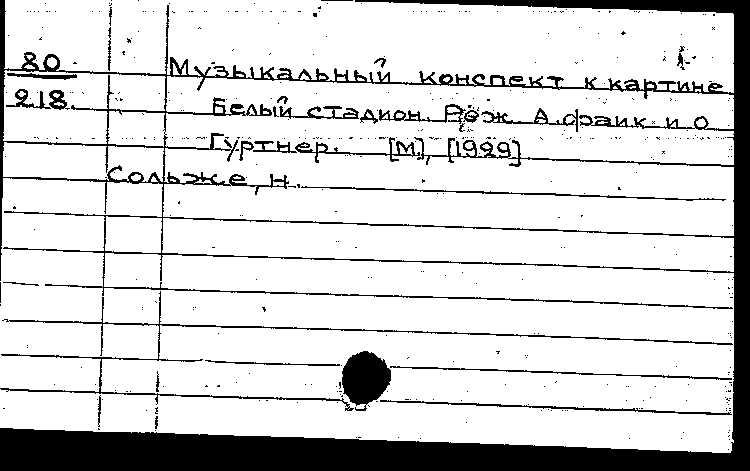 80 Музыкальный конспект к картине
218. Белый стадион. Реж. А. фраик и О
Гуртнер. [М], [1929]
Сольже, Н.